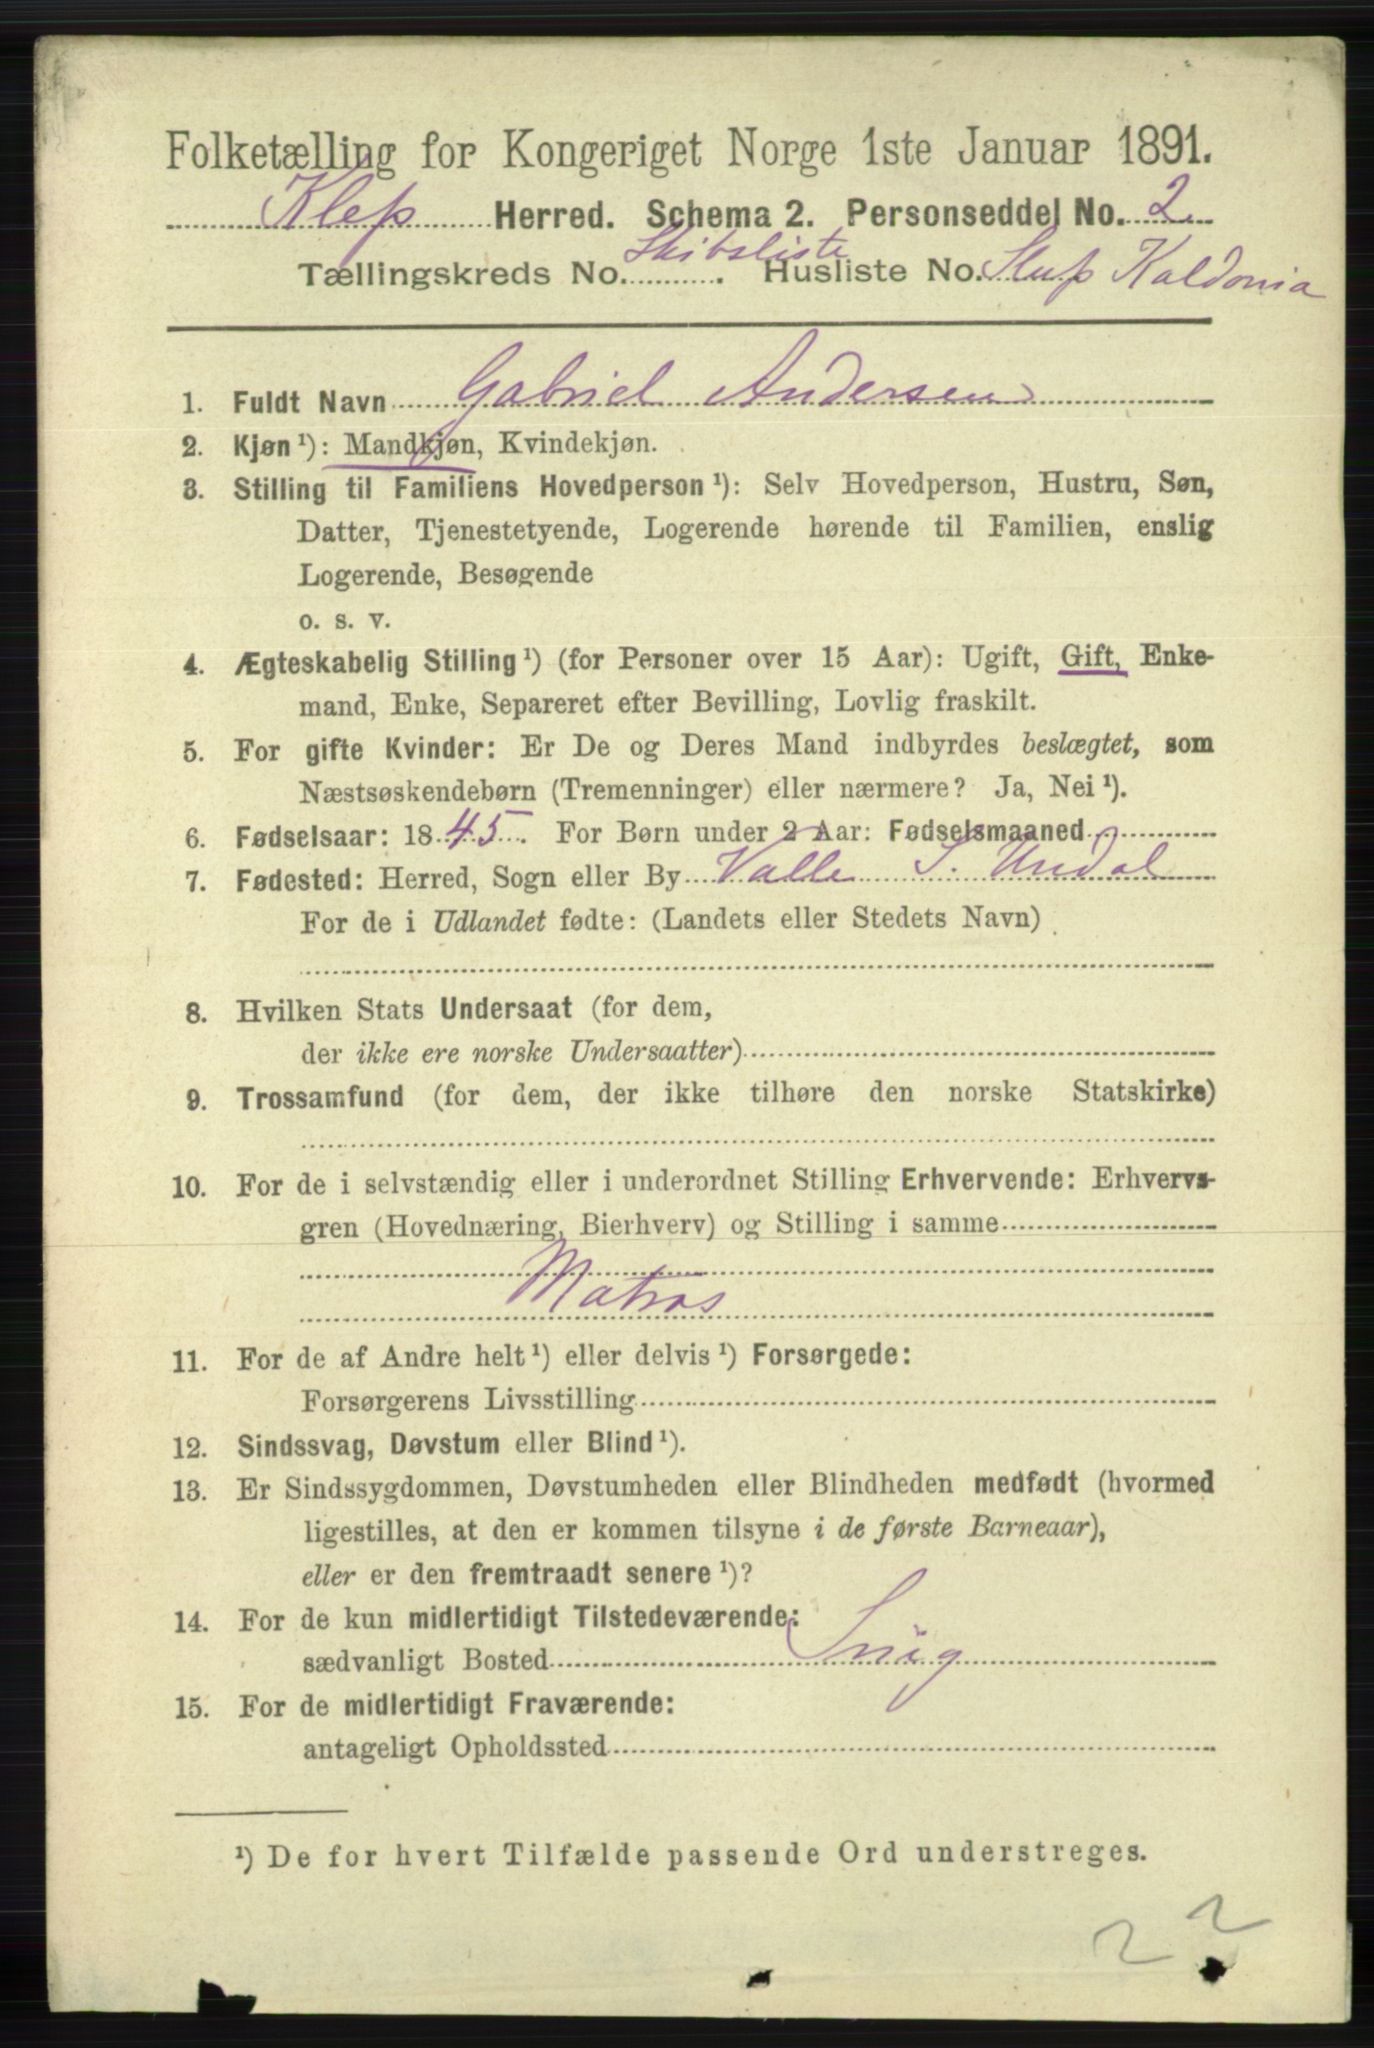 Folketælling for Kongeriget Norge 1ste Januar 1891.
Klep Herred. Schema 2. Personseddel No. 2.
Tællingskreds No. Skibsliste. Husliste No. Slup Kaldonia
1. Fuldt Navn Gabriel Andersen
2. Kjøn ¹): Mandkjøn, Kvindekjøn.
3. Stilling til Familiens Hovedperson ¹): Selv Hovedperson, Hustru, Søn,
Datter, Tjenestetyende, Logerende hørende til Familien, enslig
Logerende, Besøgende
o. s. v.
4. Ægteskabelig Stilling ¹) (for Personer over 15 Aar): Ugift, Gift, Enke-
mand, Enke, Separeret efter Bevilling, Lovlig fraskilt.
5. For gifte Kvinder: Er De og Deres Mand indbyrdes beslægtet, som
Næstsøskendebørn (Tremenninger) eller nærmere? Ja, Nei ¹).
6. Fødselsaar: 1845. For Børn under 2 Aar: Fødselsmaaned
7. Fødested: Herred, Sogn eller By Valle S. Undal
For de i Udlandet fødte: (Landets eller Stedets Navn)
8. Hvilken Stats Undersaat (for dem,
der ikke ere norske Undersaatter)
9. Trossamfund (for dem, der ikke tilhøre den norske Statskirke)
10. For de i selvstændig eller i underordnet Stilling Erhvervende: Erhvervs-
gren (Hovednæring, Bierhverv) og Stilling i samme
Matros
11. For de af Andre helt ¹) eller delvis ¹) Forsørgede:
Forsørgerens Livsstilling
12. Sindssvag, Døvstum eller Blind ¹).
13. Er Sindssygdommen, Døvstumheden eller Blindheden medfødt (hvormed
ligestilles, at den er kommen tilsyne i de første Barneaar),
eller er den fremtraadt senere ¹)?
14. For de kun midlertidigt Tilstedeværende:
sædvanligt Bosted Snig
15. For de midlertidigt Fraværende:
antageligt Opholdssted
¹) De for hvert Tilfælde passende Ord understreges.
2 2